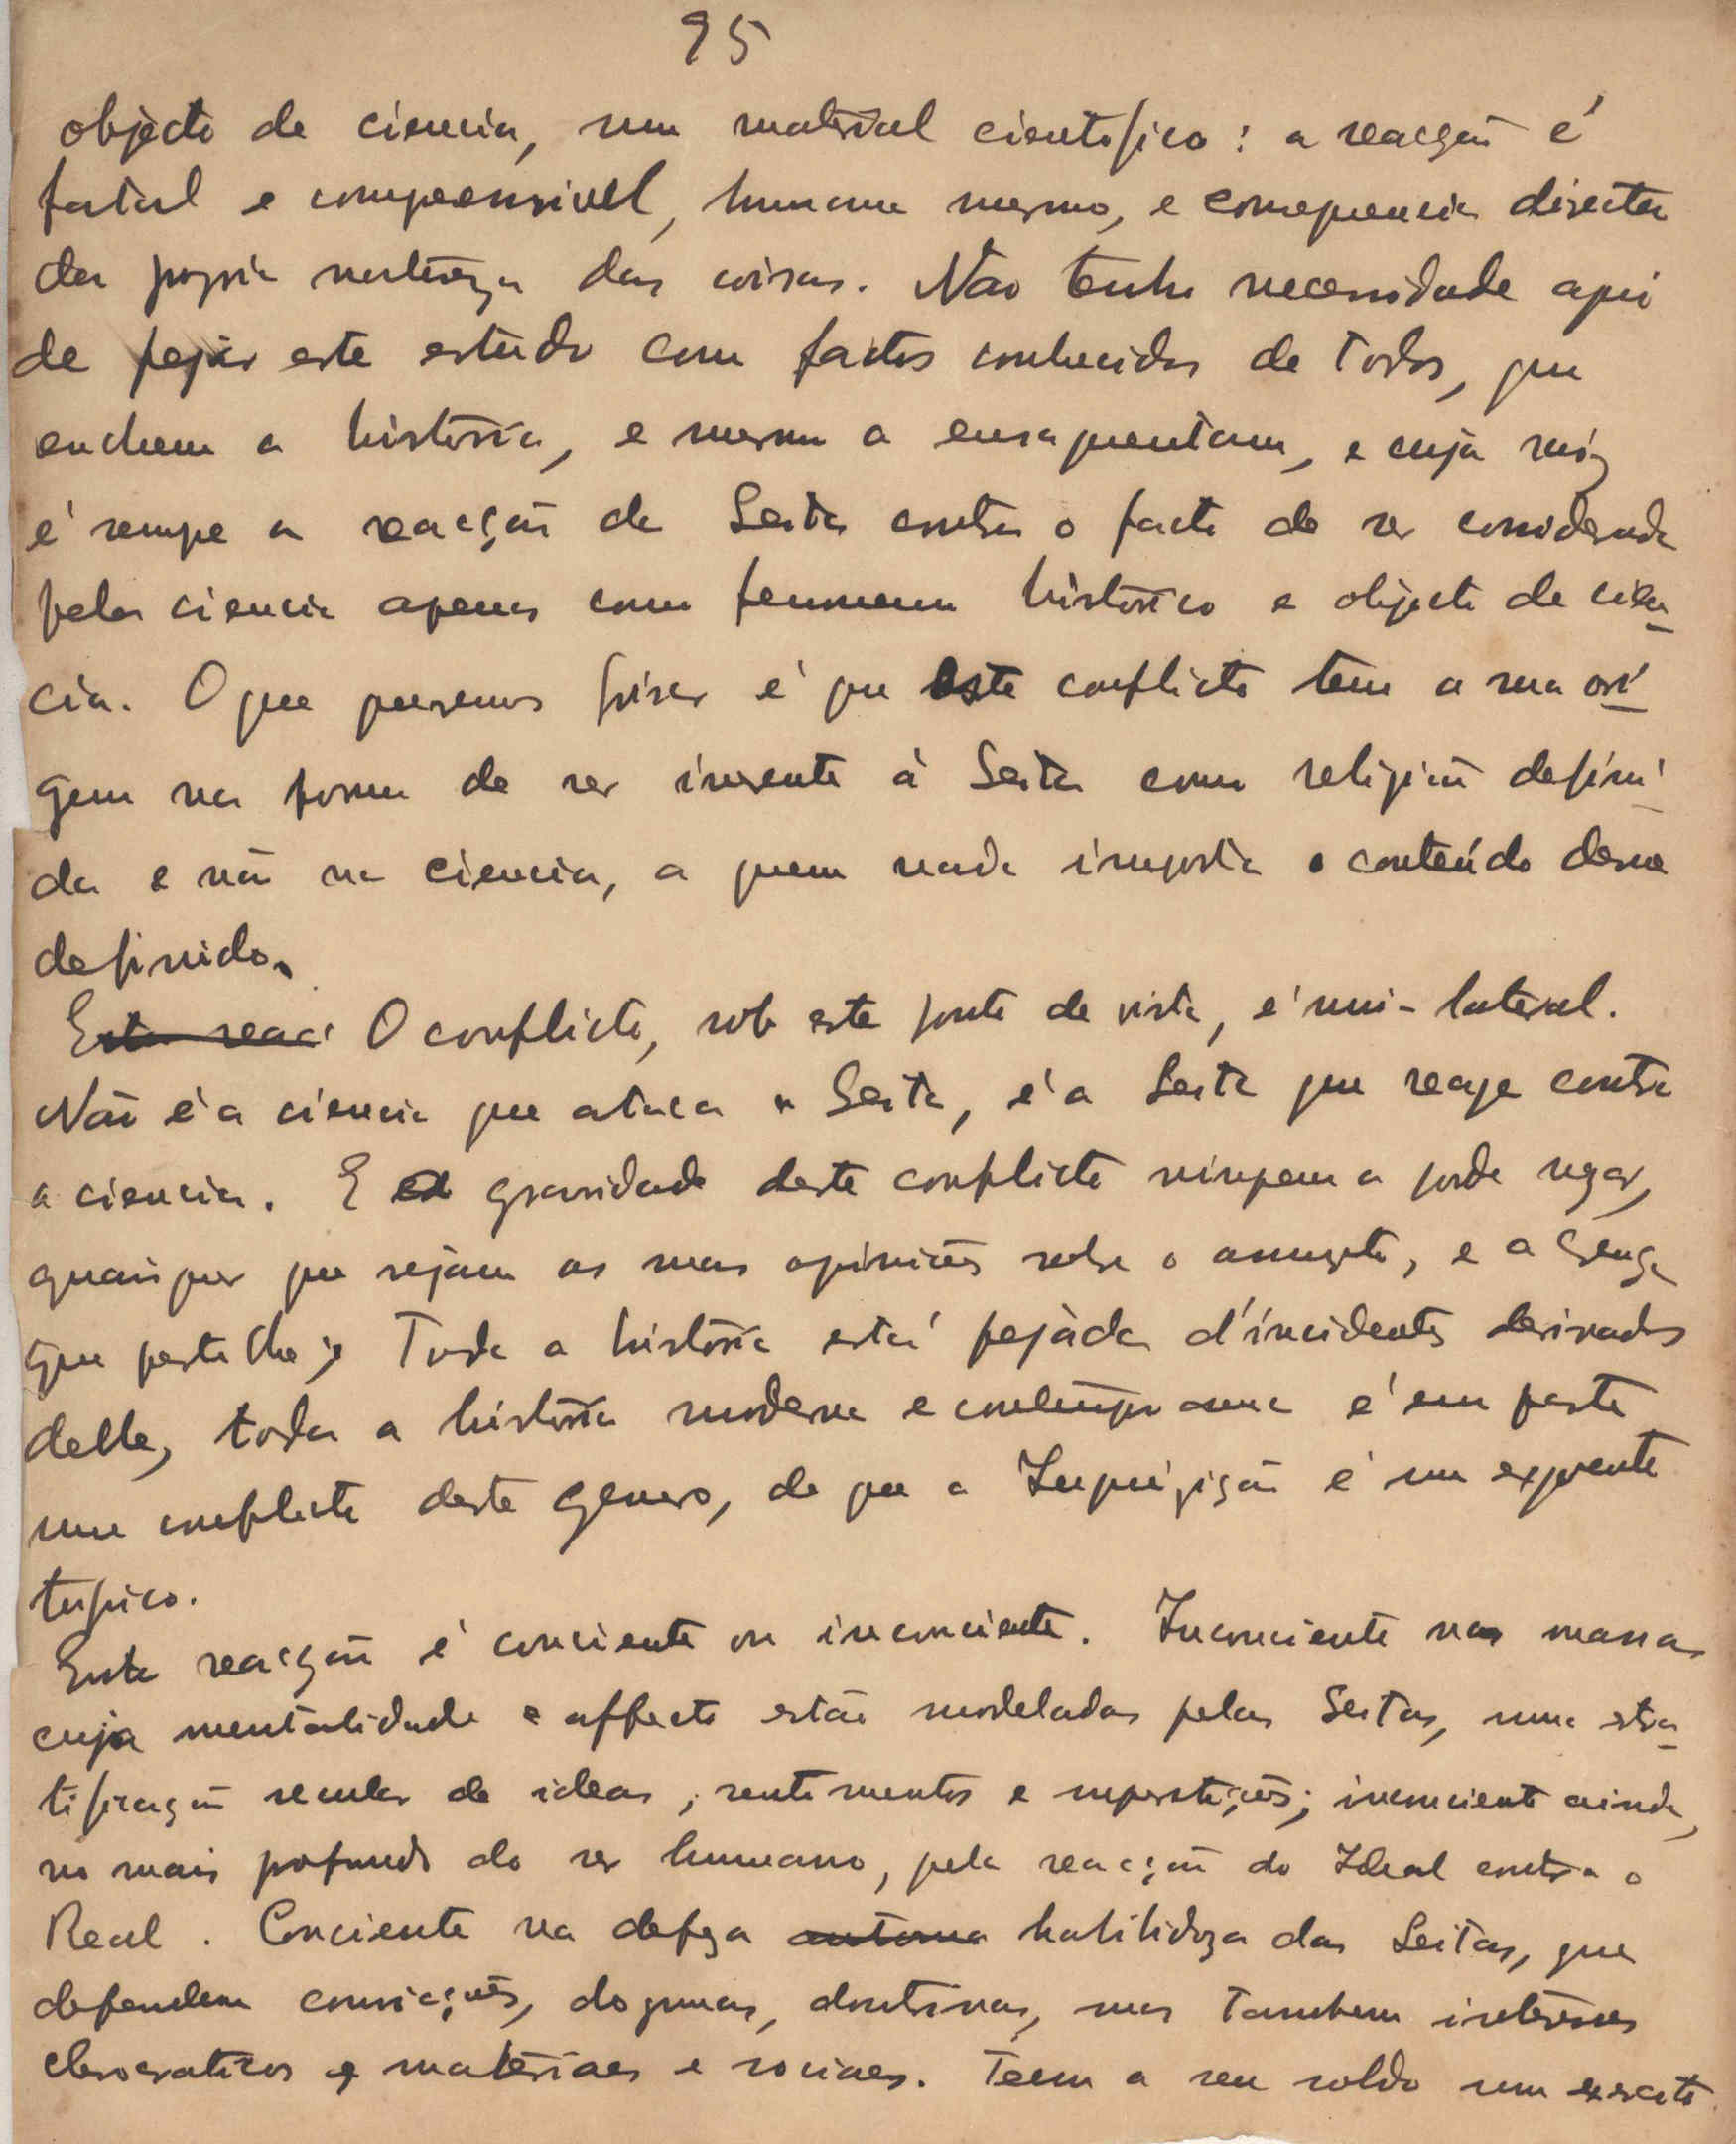 95
objecto de ciencia, um material cientifico: a reacção é
fatal e compreensivel, humana mesmo, e consequencia directa
da propria natureza das coisas. Não tenho necessidade aqui
de pejár este estudo com factos conhecidos de todos, que
enchem a história, e mesmo a ensaguentam, e cuja raiz
é sempre a reacção da Seita contra o facto de ser considerada
pela ciencia apenas como fenomeno histórico e objecto de cien-
cia. O que queremos frisar é que este conflicto tem a sua ori-
gem na forma de ser inerente á Seita como religião defini-
da e não na ciencia, a quem nada importa o conteúdo desse
definido.
Esta reac O conflicto, sob este ponto de vista, é uni-lateral.
Não é a ciencia que ataca a Seita, é a Seita que reage contra
a ciencia. E a gravidade deste conflicto ninguem a pode negar,
quaisquer que sejam as suas opiniões sobre o assumpto, e a crença
que partilhe; Toda a história está pejáda d'incidentes derivados
delle, toda a história moderna e contemporanea é em parte
um conflicto deste genero, de que a Inquizição é um expoente
tipico.
Esta reacção é conciente ou inconciente. Inconciente nas massas
cuja mentalidade e affecto estão modelados pelas Seitas, uma stra-
tificação secular de ideas, sentimentos e superstições; inconciente ainda,
no mais profundo do ser humano, pela reacção do Ideal contra o
Real. Conciente na defeza habilidoza das Seitas, que
defendem convicções, dogmas, doutrinas, mas tambem interesses
cleocraticos e materiaes e sociaes. Teem a seu soldo um exercito